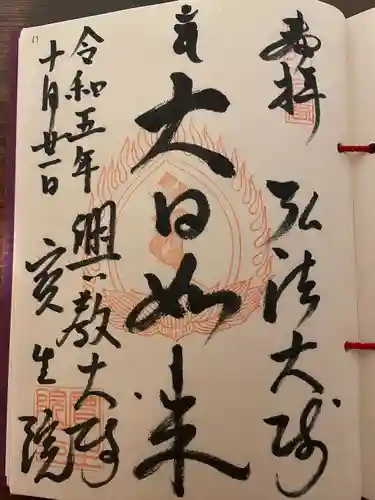 奉拝
弘法大師
大日如来
興教大師
宝生院
令和五年
十月廿一日